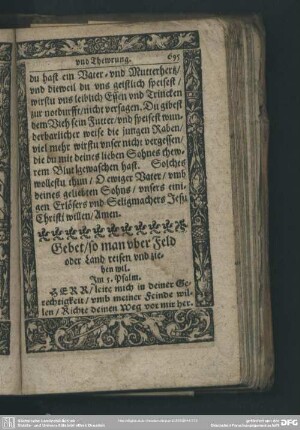 vnd Thewrung. 695
du hast ein Vater- vnd Mutterhertz/
vnd dieweil du vns geistlich speisest/
wirstu vns leiblich Essen vnd Trincken
zur notdurfft/nicht versagen. Du gibest
dem Vieh sein Futter/vnd speisest wun-
derbarlicher weise die jungen Raben/
viel mehr wirstu vnser nicht vergessen/
die du mit deines lieben Sohnes thew-
rem Blut gewaschen hast. Solches
wollestu thun/ O ewiger Vater/ vmb
deines geliebten Sohns/ vnsers eini-
gen Erlösers vnd Seligmachers Jesu
Christi willen/Amen.
Gebet/so man vber Feld
oder Land reisen vnd zie-
hen wil.
Im 5. Psalm.
HERR/ leite mich in deiner Ge-
rechtigkeit/ vmb meiner Feinde wil-
len/ Richte deinen Weg vor mir her.